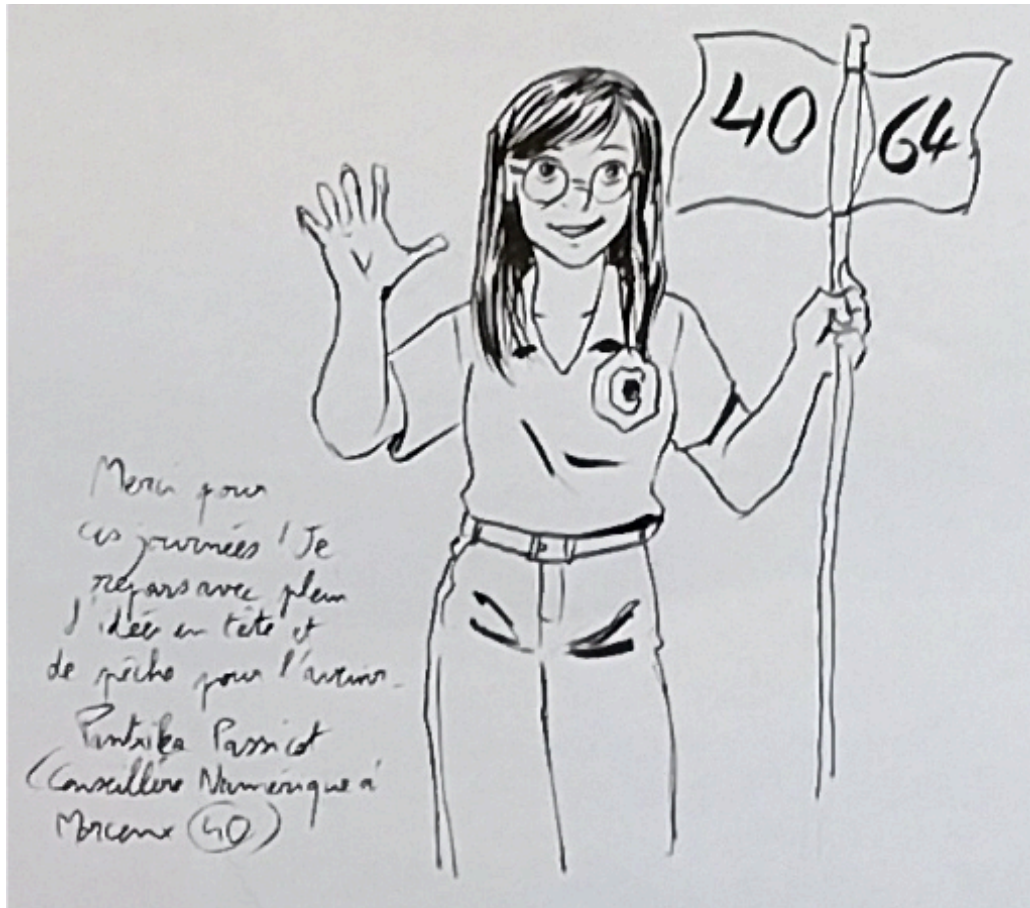 40 64
Merci pour
ces journées ! Je
repars avec plein
d'idées en tête et
de pêche pour l'avenir.
Passicot
(Conseillère Numérique à
Morcenx (40)